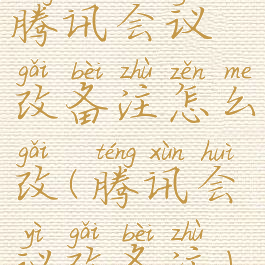 腾讯会议
gǎi bèi zhù zěn me
改备注怎么
gǎi téng xùn huì
改(腾讯会
yì gǎi bèi zhù
议改备注)